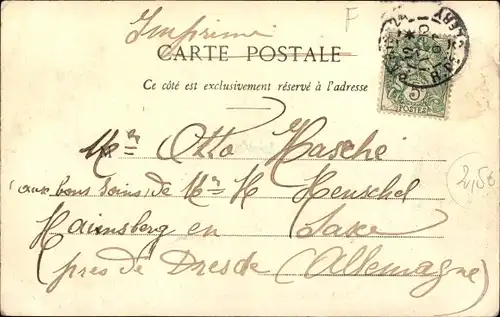 Imprimé
F
CARTE POSTALE
Ce côté est exclusivement réservé à l'adresse
5
POSTES
Mr Otto Hasche
(aux bons soins) de Mr H Henschel
Hainsberg en Saxe
près de Dresde (Allemagne)
2,50